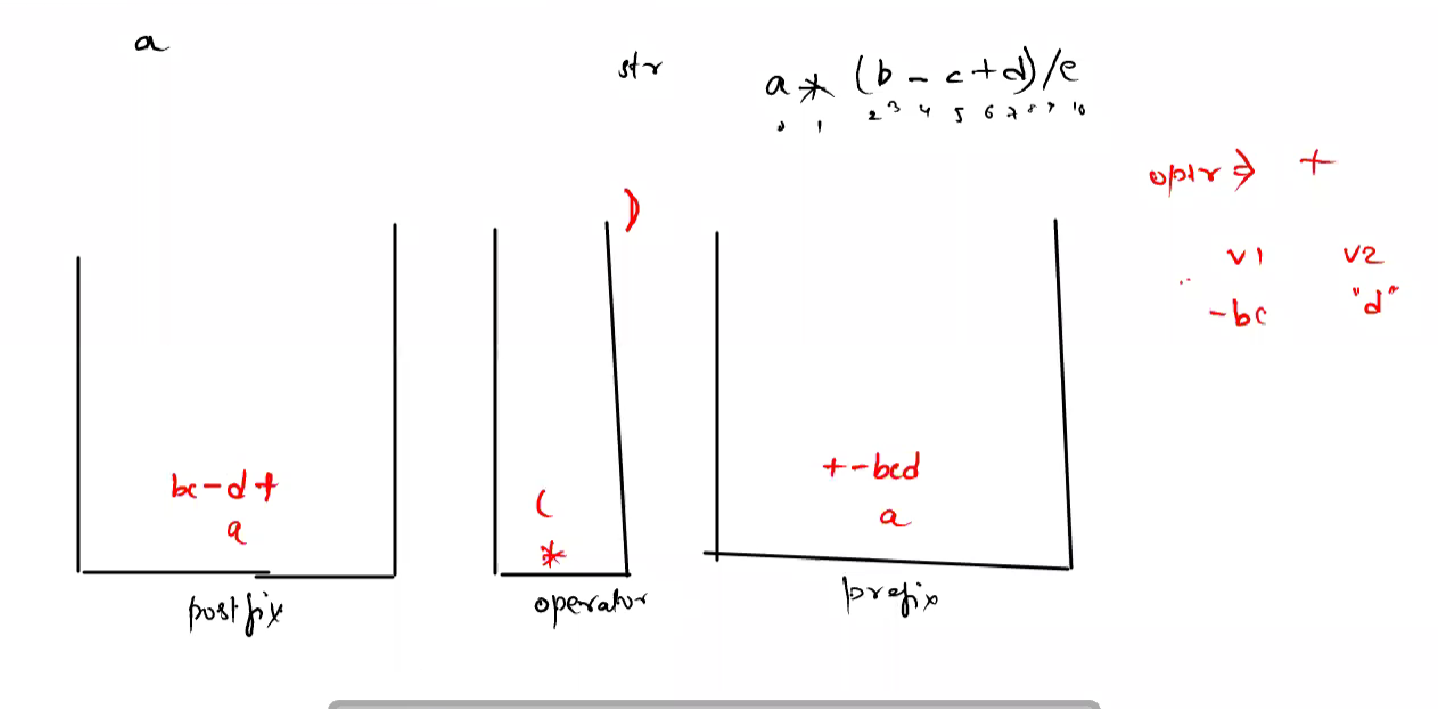 a
str
a * (b - c + d) / e
0 1 2 3 4 5 6 7 8 9 10
optr ⇒ +
)
v1 v2
-bc "d"
bc-d+
a
(
*
+-bcd
a
postfix
operator
prefix